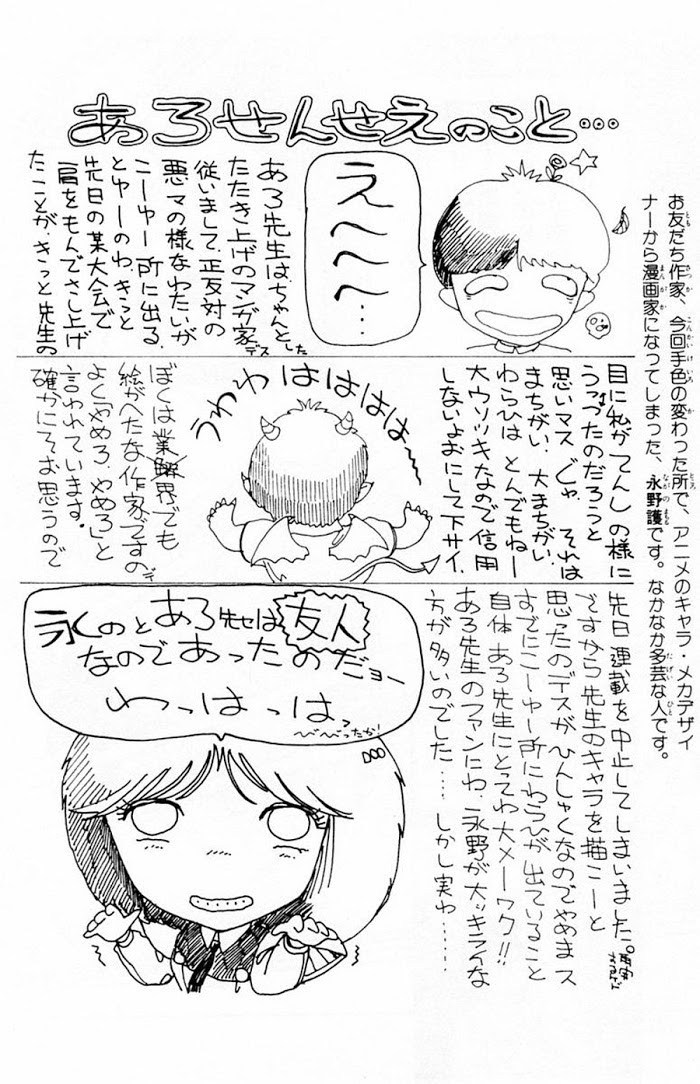 あろせんせえのこと…
お友だち作家、今回手色の変わった所で、アニメのキャラ・メカデザイ
ナーから漫画家になってしまった、永野護です。なかなか多芸な人です。
え〜〜〜…
あろ先生は、ちゃんとした
たたき上げのマンガ家デス
従いまして、正反対の
悪マの様なわたいが
こーゆー所に出る、
とゆーのわ、きっと
先日の某大会で
肩をもんでさし上げ
たことが、きっと先生の
目に私がてんしの様に
うつったのだろうと
思いマス じゃ、それは
まちがい、大まちがい、
わらひは とんでもねー
大ウソツキなので信用
しないよおにして下サイ、
うわわはははは〜
ぼくは業界でも
絵がへたな作家ですのデ
よく「やめろ、やめろ」と
言われています。
確かにそお思うので
先日 連載を中止してしまいました。
ですから先生のキャラを描こーと
思ったのデスが、ひんしゅくなのでやめまス
すでにこーゆー所にわらひが出ていること
自体 あろ先生にとってわ大メーワク!!
あろ先生のファンにわ、永野が大ッキライな
方が多いのでした…… しかし実わ………
永のとあろ先セは友人
なのであったのだョー
わっはっはっ